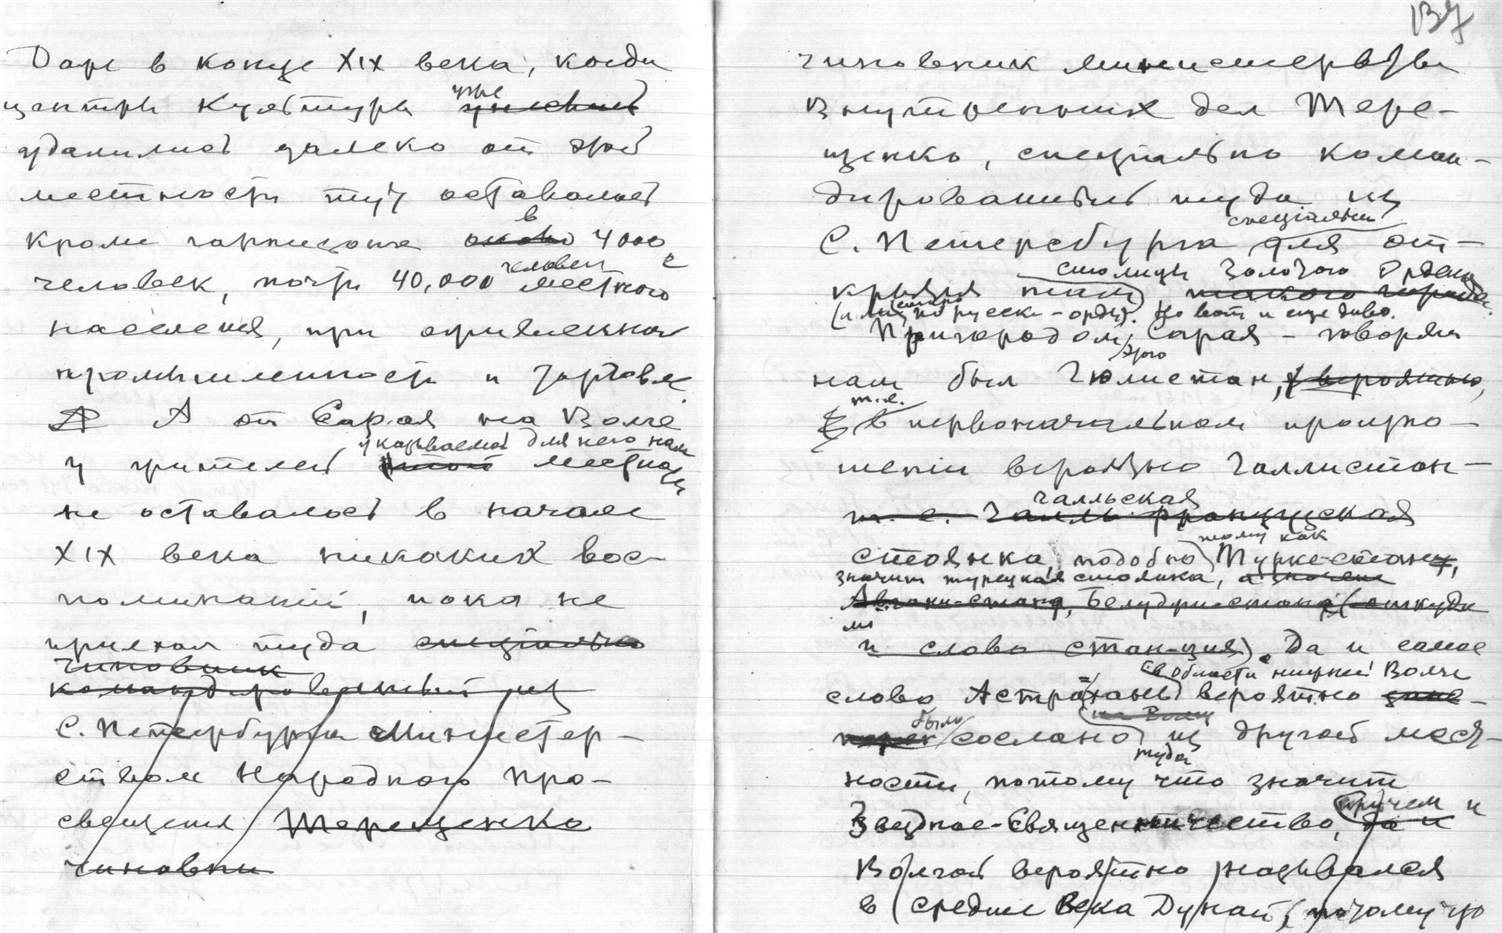 Даже в конце XIX века, когда
центры культуры уже
удалились далеко от этой
местности тут оставалось
кроме гарнизона в 4000
человек, почти 40,000 человек местного
населения, при
промышленности и торговле.
А от Сарая на Волге
у жителей указываемой для него нами местности
не оставалось в начале
XIX века никаких вос-
поминаний, пока не
приехал туда специально
чиновник
командированный из
С. Петербурга Министер-
ством Народного Про-
свещения Терещенко
чиновни
137
чиновник министерства
Внутренних дел Тере-
щенко, специально коман-
дированный туда из
С. Петербурга специально для от-
крытия там столицы Золотого Ордена
(или по русски - орды). Но вот и еще диво.
Пригородом Сарая - говорят
нам был этого Гюлистан, вероятно,
т.е. в первоначальном произно-
шении вероятно Галлистан -
т. е. Галль французская галльская
стоянка, подобно тому как Турке-стан,
значит турецкая стоянка, а
Авгани-стана, Белуджи-стана (откуда
и слово стан-ция). Да и самое
слово Астра-хань в области нижней Волги вероятно
было сослано туда из другой мест-
ности, потому что значит
Звездное-Священничество, причем и
Волгой вероятно назывался
в средние века Дунай, (потому что